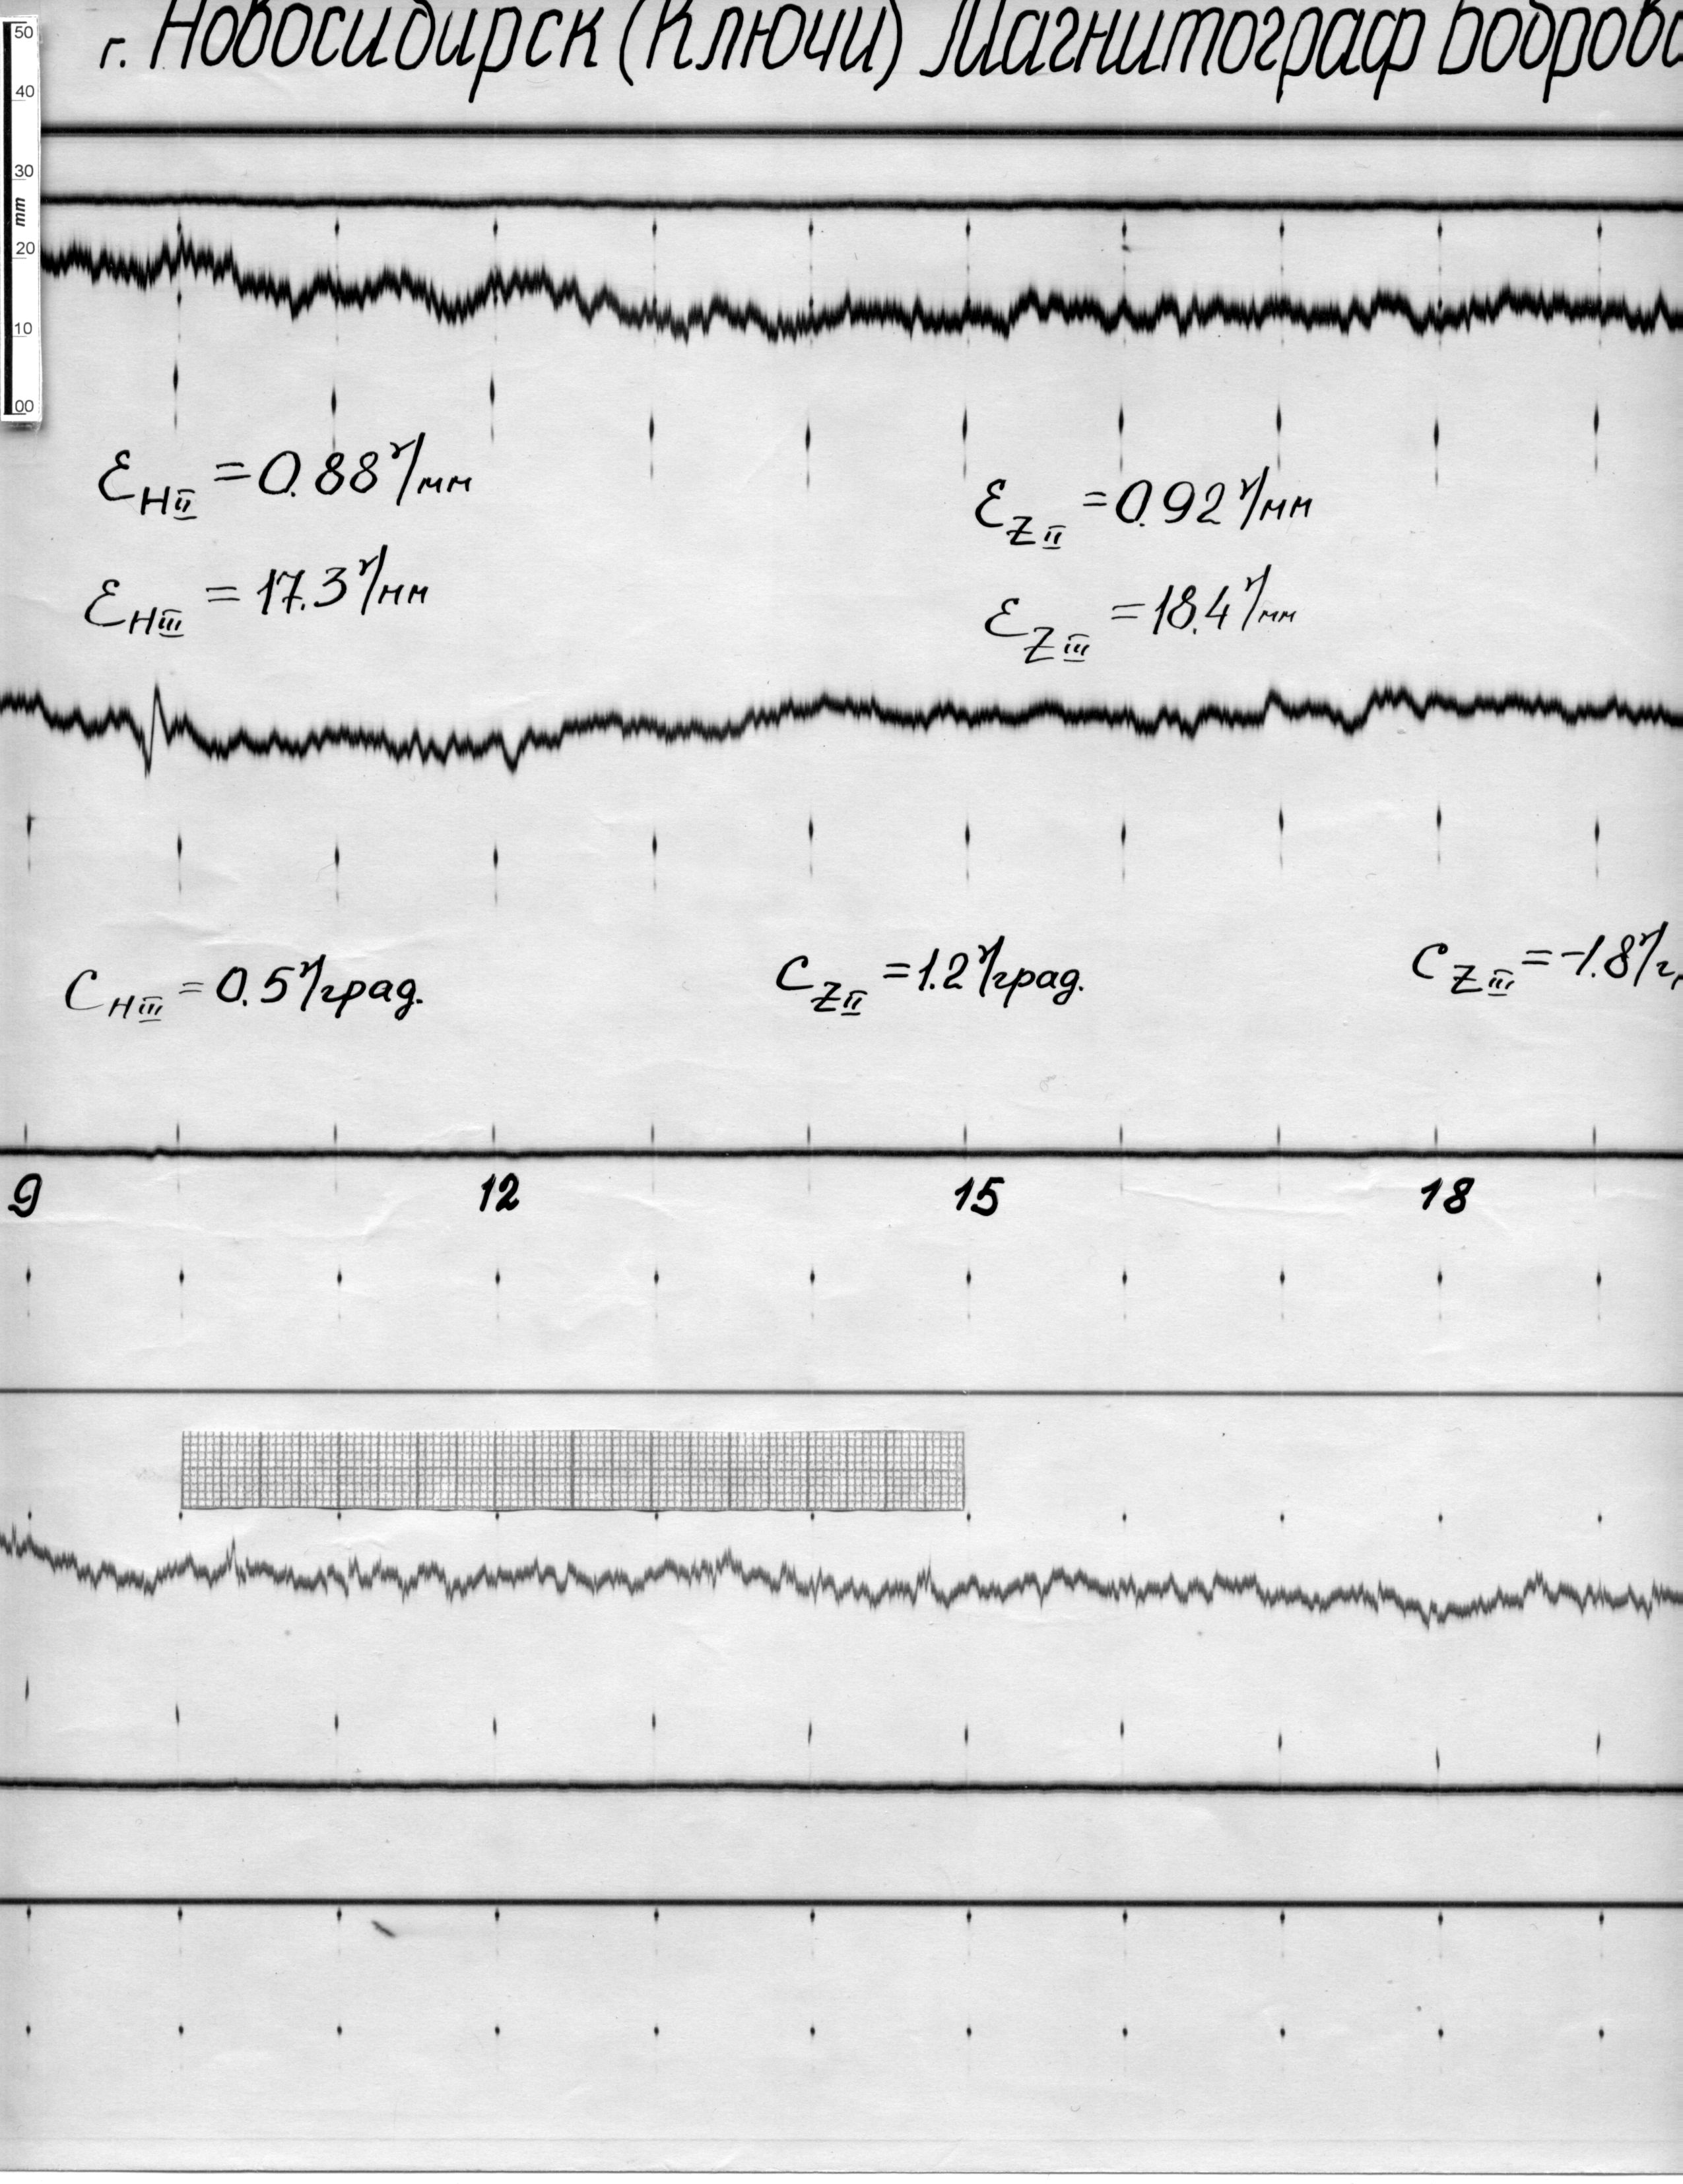 г. Новосибирск (Ключи) Магнитограф Боброва
50
40
30
mm
20
10
00
ε_HII = 0.88 γ/мм
ε_ZII = 0.92 γ/мм
ε_HIII = 17.3 γ/мм
ε_ZIII = 18.4 γ/мм
C_HIII = 0.5 γ/град.
C_ZII = 1.2 γ/град.
C_ZIII = -1.8 γ/г
9 12 15 18